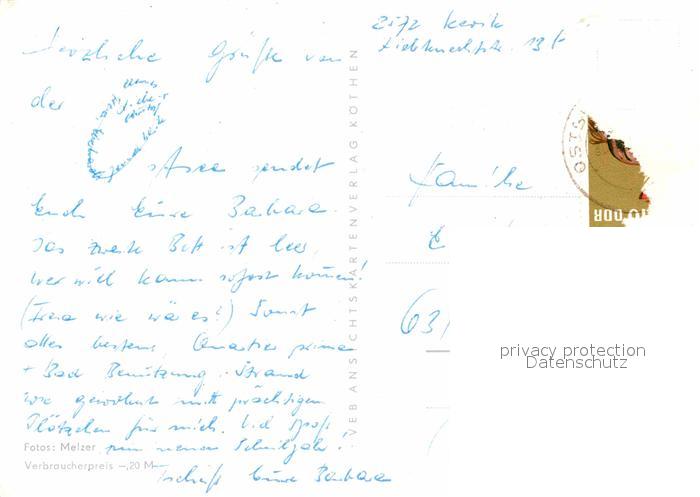 Herzliche Grüße von
der
Ostsee sendet
Euch Eure Barbara.
Das zweite Bett ist leer,
wer will kann sofort kommen!
(Irene wie wär es?) Sonst
alles bestens, Quartier prima
+ Bad Benutzung. Strand
wie gewohnt mit prächtigen
Plätzchen für mich. Viel Spaß
zum neuen Schuljahr!
Tschüß Eure Barbara
Fotos: Melzer
Verbraucherpreis –,20 M
VEB ANSICHTSKARTENVERLAG KÖTHEN
2572 Kerik
Liebknechtstr. 13
Familie
631
OSTS
10 DDR
privacy protection
Datenschutz